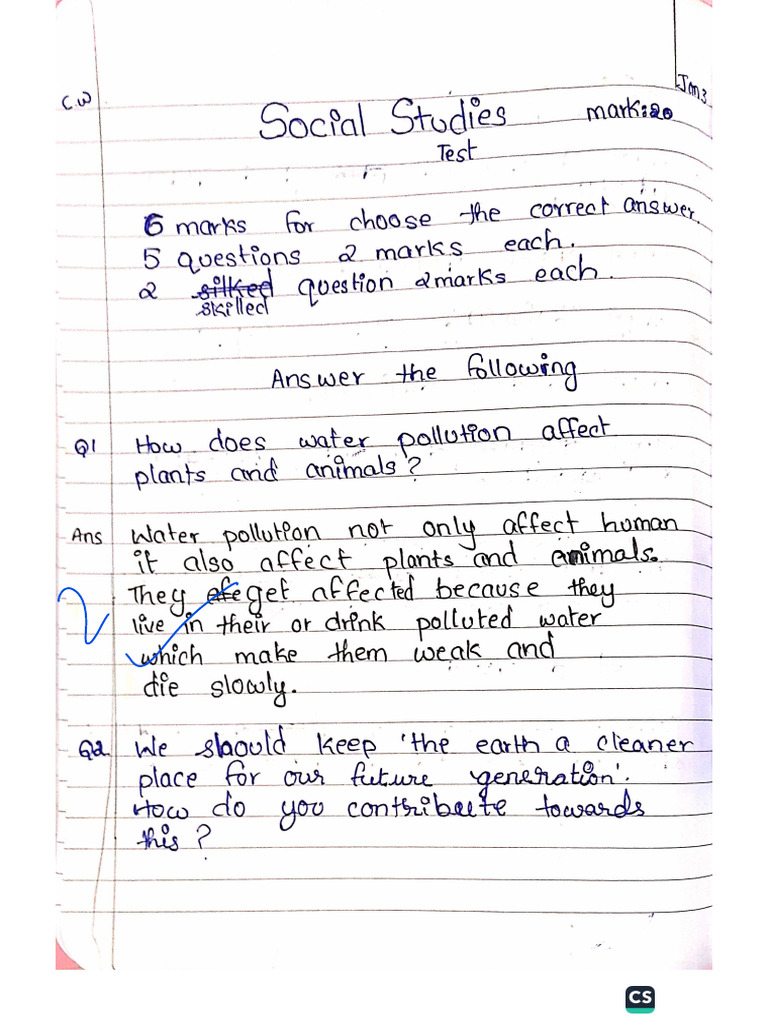 C.W
Jan 3
Social Studies
mark:20
Test
6 marks for choose the correct answer.
5 questions 2 marks each.
2 silked question 2marks each.
skilled
Answer the following
Q1 How does water pollution affect
plants and animals?
Ans Water pollution not only affect human
it also affect plants and animals.
They get affected because they
2 live in their or drink polluted water
which make them weak and
die slowly.
Q2 We should keep 'the earth a cleaner
place for our future generation'.
How do you contribute towards
this?
CS